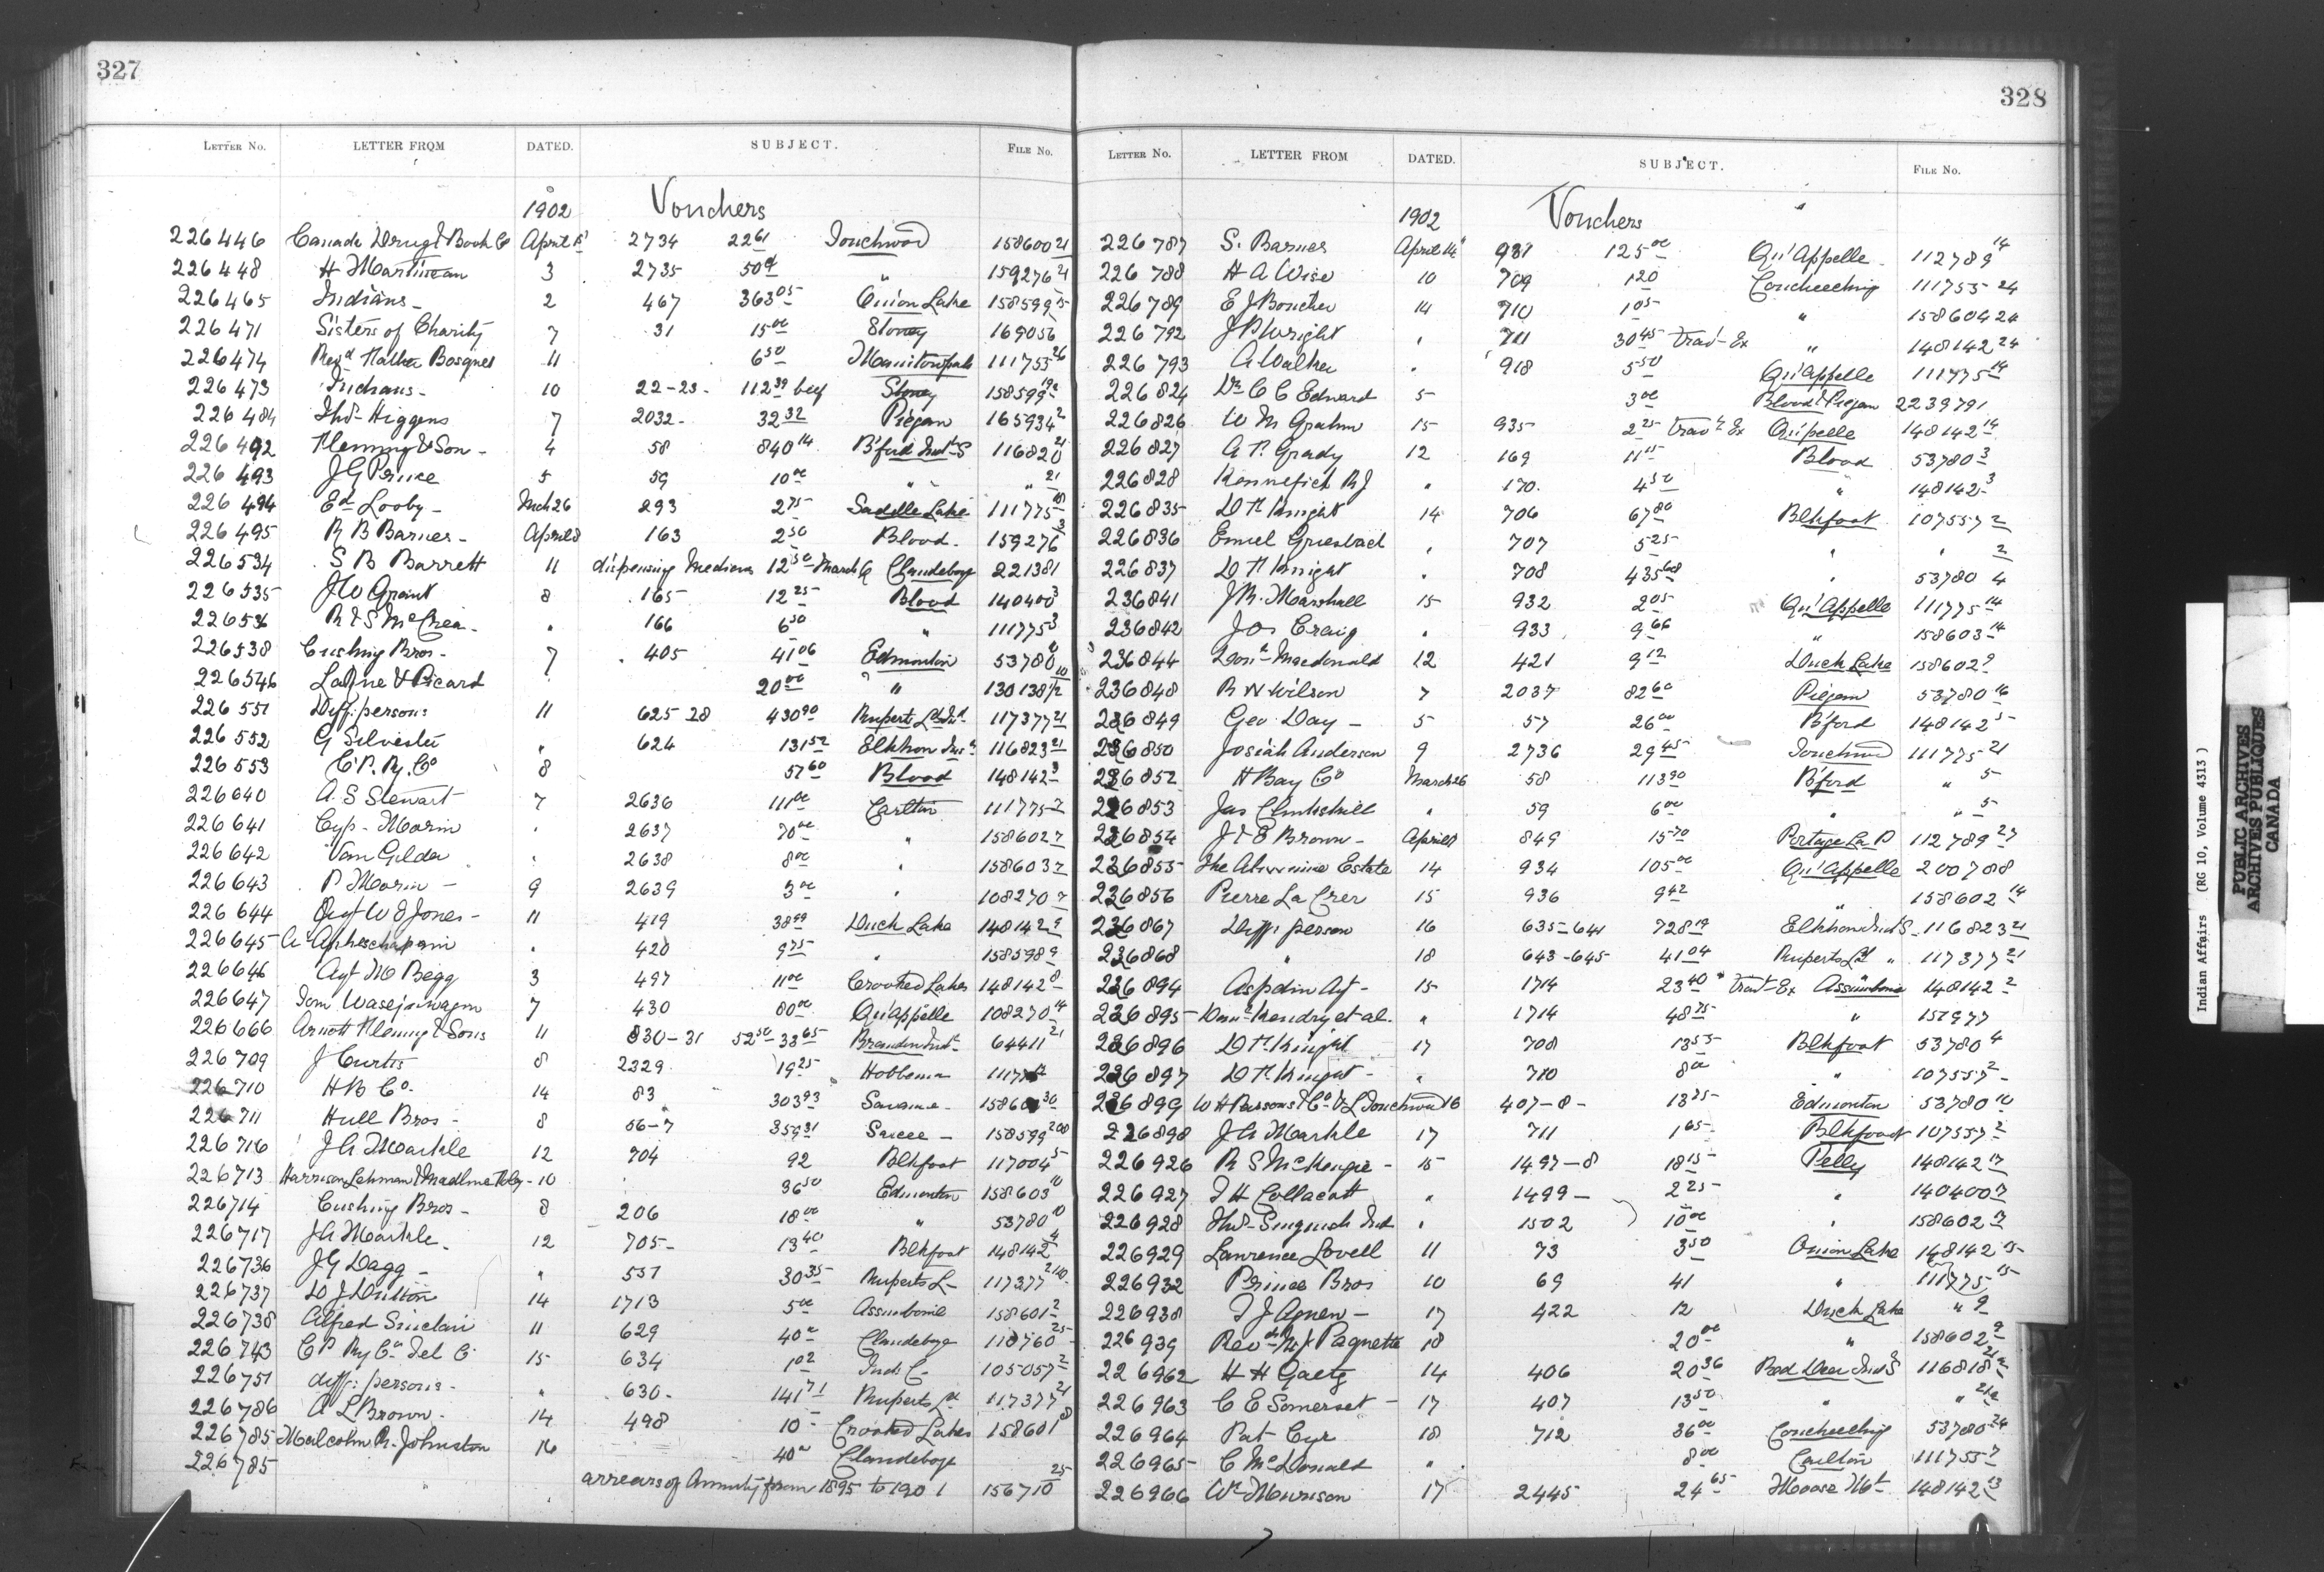 327
LETTER NO. LETTER FROM DATED. SUBJECT. FILE NO.
1902 Vouchers
226446 Canada Drug & Book Co April 15 2734 22 61 Touchwood 158600 21
226448 H Martineau 3 2735 " 159276 21
226465 Indians - 2 467 363 05 Onion Lake 158599 15
226471 Sisters of Charity 7 31 15 00 Stoney 169056
226474 Revd Father Bosquet 11 6 50 111755 26
226473 Indians - 10 22-23- 112 39 beef Stoney 158599
226484 Thos Higgens 7 2032- 32 32 Piegan 165934 2
226492 Fleming & Son - 4 58 840 14 B'ford Indl S 116820 21
226493 J G Prince 5 59 10 00 " " " 21
226494 Ed Looby - Mch 26 293 2 75 Saddle Lake 111775
226495 R B Barnes - April 8 163 2 50 Blood - 159276 3
226534 S B Barrett 11 dispensing Medicines 12 50 March Clandeboye 221381
226535 J W Grant 8 165 12 25 Blood 140400 3
226536 R & S McCrea - " 166 6 50 " 111775 3
226538 Cushing Bros - 7 405 41 06 Edmonton 53780
226546 & Picard 20 00 " 130138/2
226551 Diff: persons 11 625-28 430 90 Ruperts Ld Indl 117377 21
226552 G Silvester " 624 131 52 Elkhorn Indl 116823 21
226553 C. P. Ry. Co 8 57 60 Blood 148142 3
226640 A. S Stewart 7 2636 111 00 Carlton 111775 7
226641 Cyp - Morin " 2637 70 00 " 158602 7
226642 Van Gilder " 2638 8 00 " 158603 7
226643 P Morin - 9 2639 3 00 " 108270 7
226644 Agt W E Jones - 11 419 38 99 Duck Lake 148142 9
226645 " 420 9 75 " 158598 9
226646 Agt M Begg 3 497 11 00 Crooked Lakes 148142 8
226647 7 430 80 00 Qu'Appelle 108270 14
226666 Arnott Fleming & Sons 11 830-31 52 50 - 38 65 Brandon Indl 64411 21
226709 J Curtis 8 2329 19 25 Hobbema
226710 H B Co. 14 83 303 93 30
226711 Hull Bros - 8 56-7 359 31 Sarcee - 158599
226716 J A Markle 12 704 92 Blkfoot 117004 5
226713 Harrison Lehman & - 10 36 50 Edmonton 158603 10
226714 Cushing Bros - 8 206 18 00 " 53780 10
226717 J A Markle - 12 705- 13 40 Blkfoot 148142 4
226736 J G Dagg - " 551 30 35 Ruperts L - 117377
226737 D J Dutton 14 1713 5 00 Assiniboine 158601 2
226738 Alfred Sinclair 11 629 40 Clandeboye 25
226743 C P Ry Co Tel Co 15 634 1 02 Inds C - 105057 2
226751 diff: persons - " 630- 141 71 Ruperts Ld 117377 21
226786 A L Brown - 14 498 10 - Crooked Lakes 158601 8
226785 Malcolm R. Johnston 16 40 Clandeboye
226785 arrears of Annuity from 1895 to 1901 156710 25
328
LETTER NO. LETTER FROM DATED. SUBJECT. FILE NO.
1902 Vouchers "
226787 S. Barnes April 14 931 125 00 Qu'Appelle - 112789 14
226788 H A Wise 10 709 1 20 Coucheeching 111755 24
226789 E J Boucher 14 710 1 05 " 158604 24
226792 J B Wright " 711 30 45 Trav- Ex " 148142 24
226793 A Walker " 918 5 50 Qu'Appelle 111775 14
226824 Dr C C Edward 5 3 00 Blood & Piegan 223979/1
226826 W M Graham 15 935 2 25 Trav- Ex Qu'pelle 148142 14
226827 A P. Grady 12 169 11 15 Blood 53780 3
226828 Kennefick R J " 170 - 4 50 " 148142 3
226835 D F Knight 14 706 67 80 Blkfoot 107557 2
226836 Emiel Griesbach " 707 5 25 " " 2
226837 D F Knight " 708 435 68 " 53780 4
236841 J R. Marshall 15 932 2 05 Qu'Appelle 111775 14
236842 Jos Craig " 933 9 66 " 158603 14
236844 Macdonald 12 421 9 12 Duck Lake 158602 9
236848 R N Wilson 7 2037 82 60 Piegan 53780 16
226849 Geo Day - 5 57 26 00 B'ford 148142 5
226850 Josiah Anderson 9 2736 29 45 Touchwd 111775 21
226852 H Bay Co March 26 58 113 90 B'ford " 5
226853 Jas Clinkskill " 59 6 00 " " 5
226854 J & E Brown - April 8 849 15 70 Portage La P 112789 27
226855 The Estate 14 934 105 00 Qu'Appelle 200788
226856 Pierre La Crer 15 936 9 42 " 158602 14
226867 Diff. person 16 635-641 728 19 Elkhorn Ind S - 116823 21
226868 " 18 643-645 41 04 Ruperts Ld " 117377 21
226894 Aspdin Agt - 15 1714 23 40 " Trav- Ex Assiniboine 148142 2
226895 Hendry et al. " 1714 48 75 " 157977
226896 D F Knight 17 708 13 55 Blkfoot 53780 4
226897 D F Knight - " 710 8 00 " 107557 2
226899 W H Parsons & Co 16 407-8- 13 25 Edmonton 53780 10
226898 J A Markle 17 711 1 65 Blkfoot 107557 2
226926 R S McKenzie - 15 1497-8 18 15 Pelly 148142 17
226927 J H Collacott " 1499 - 2 25 " 140400 7
226928 Thos " 1502 10 00 " 158602 17
226929 Lawrence Lovell 11 73 3 50 Onion Lake 148142 15
226932 Prince Bros 10 69 41 " 111775 15
226938 T J Agnew - 17 422 12 Duck Lake " 9
226939 Revd Paquette 18 20 00 " 158602 9
226962 H H Gaetz 14 406 20 36 Red Deer Ind S 116818
226963 C E Somerset - 17 407 13 50 " "
226964 Pat Cyr 18 712 36 00 Coucheeching 53780 24
226965 C McDonald " 8 00 Carlton 111755 7
226966 Wm Murison 17 2445 24 65 Moose Mt 148142 13
Indian Affairs (RG 10, Volume 4313)
PUBLIC ARCHIVES
ARCHIVES PUBLIQUES
CANADA